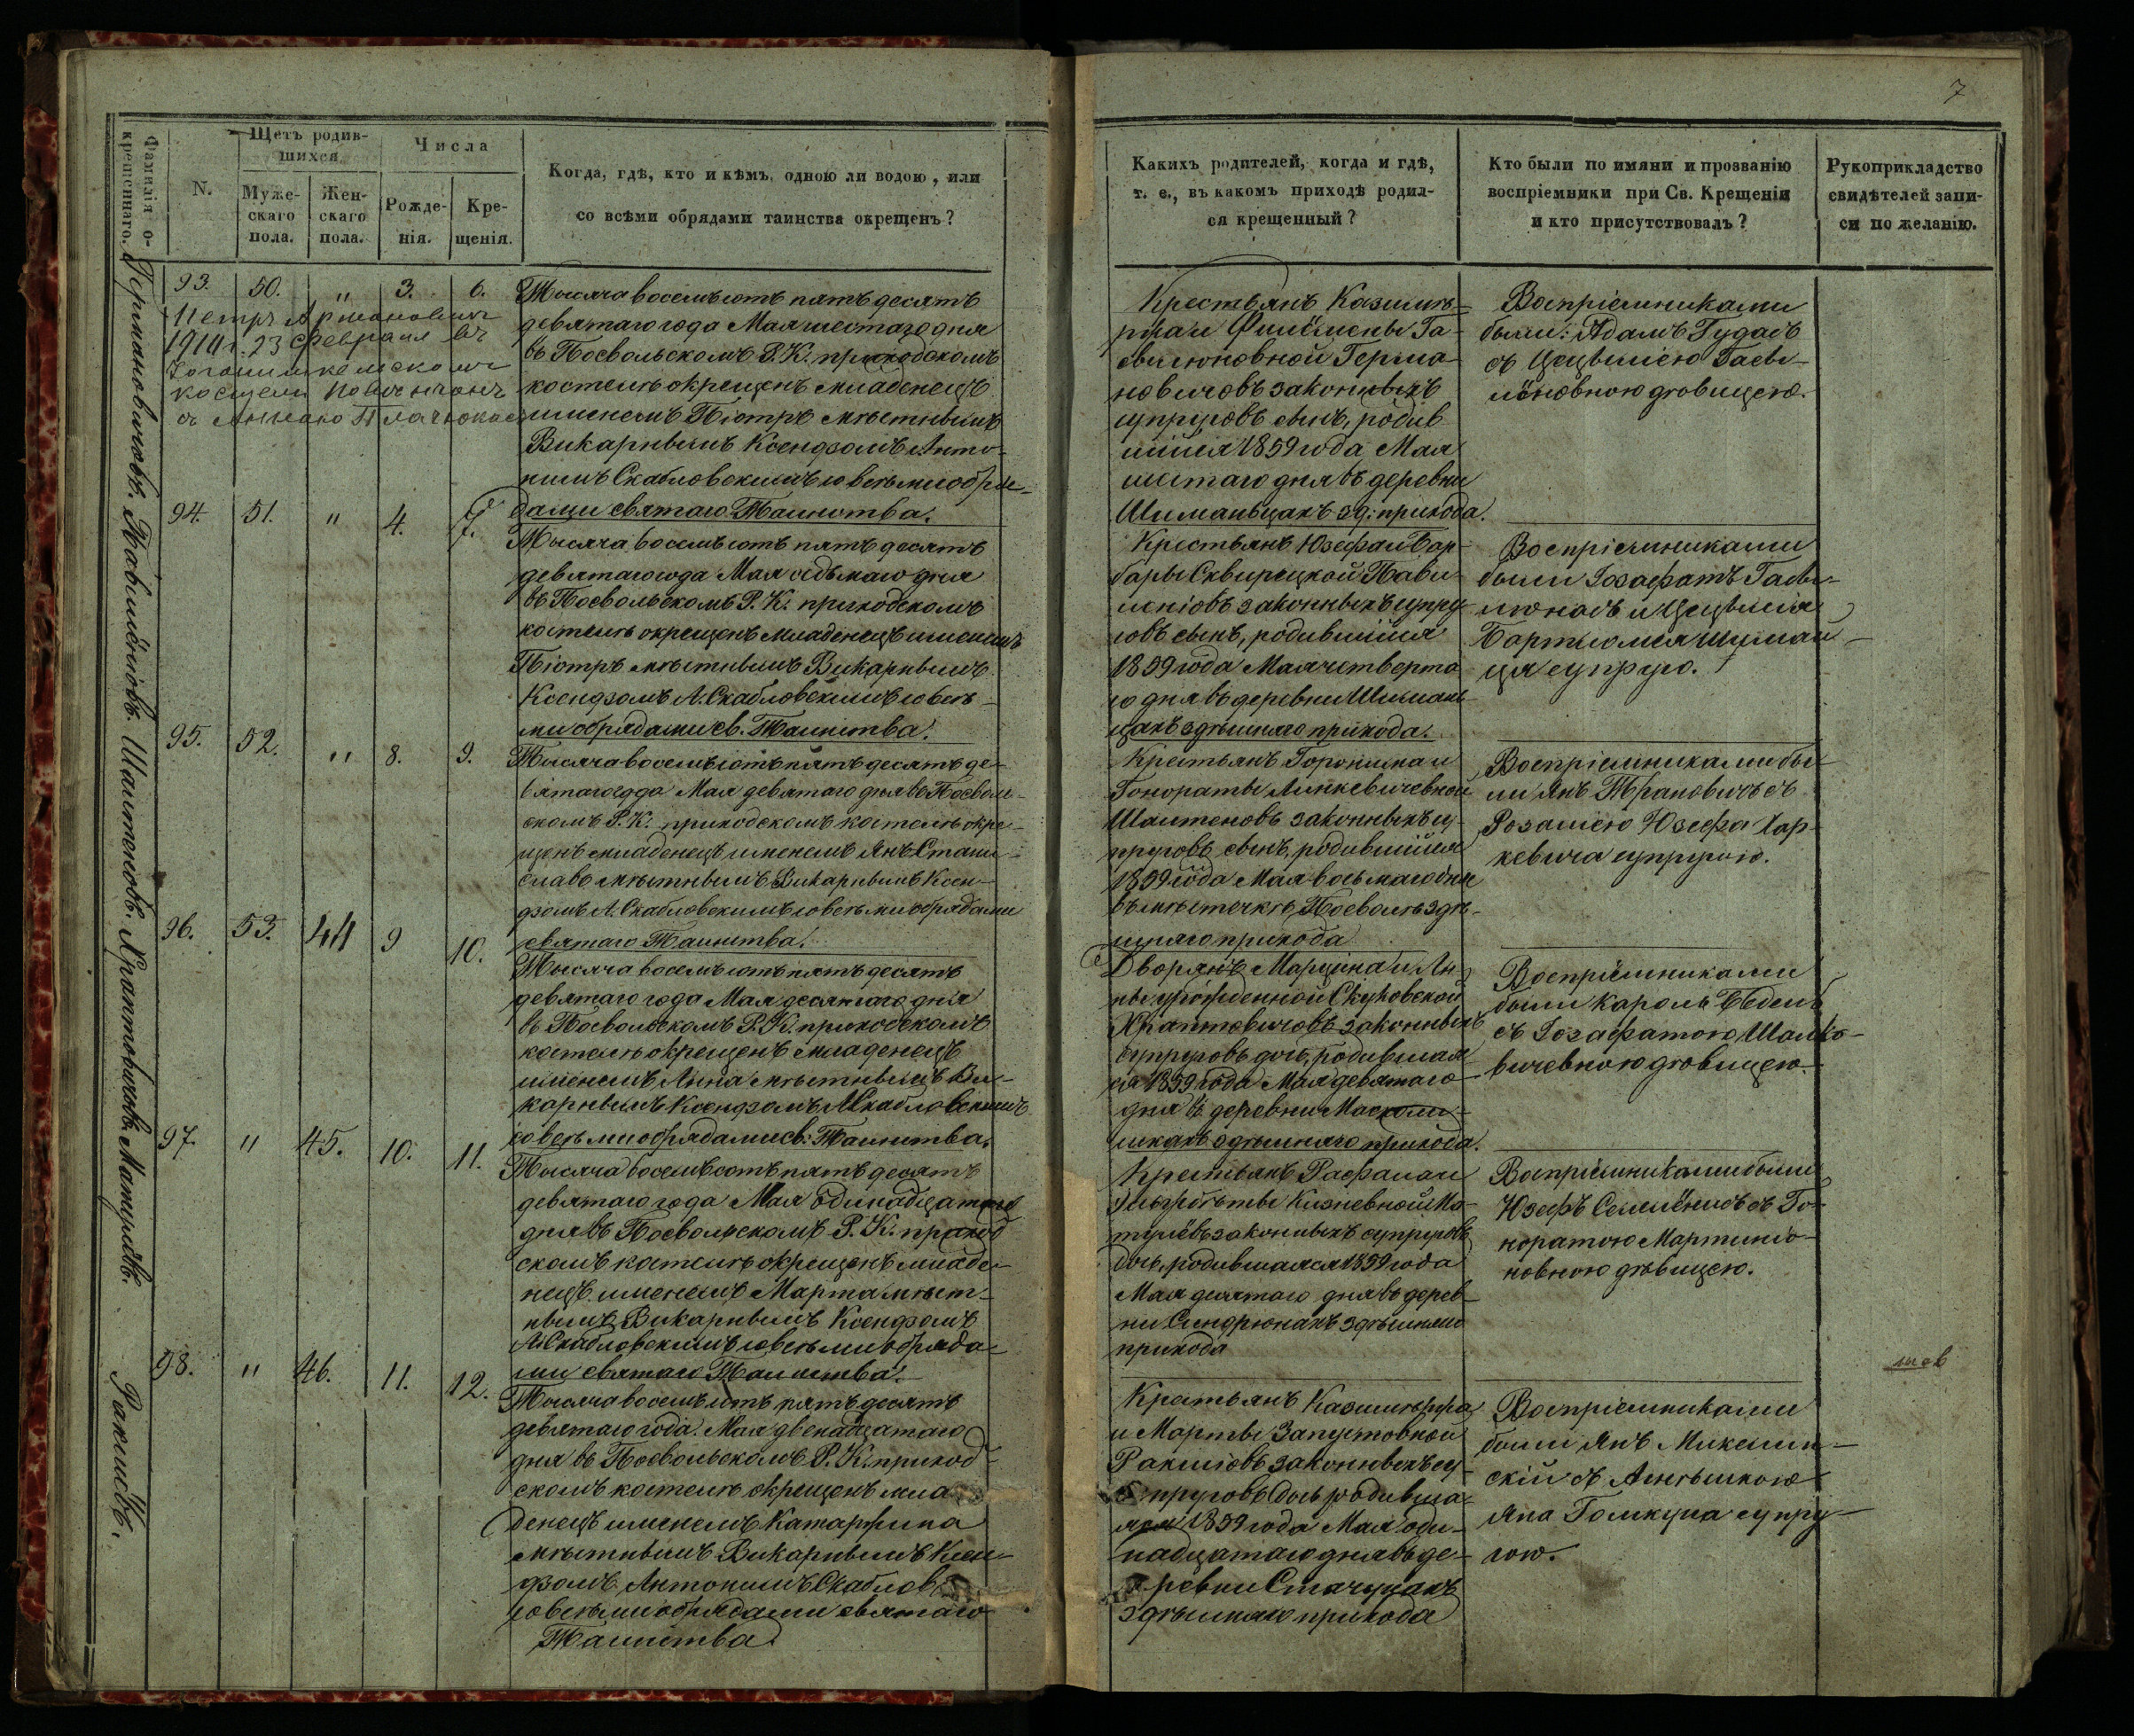 7
Фамилія о-
крещеннаго.
N.
Щетъ родив-
шихся
Муже-
скаго
пола.
Жен-
скаго
пола.
Числа
Рожде-
нія.
Кре-
щенія.
Когда, гдѣ, кто и кѣмъ, одною ли водою, или
со всѣми обрядами таинства окрещенъ?
Какихъ родителей, когда и гдѣ,
т. е., въ какомъ приходѣ родил-
ся крещенный?
Кто были по имяни и прозванію
воспріемники при Св. Крещеніи
и кто присутствовалъ?
Рукоприкладство
свидѣтелей запи-
си по желанію.
Германовичовъ.
93. 50. " 3. 6.
Петръ
1914 г. 23 февраля въ
костели повѣнчанъ
съ Анною
Тысяча восемьсотъ пятьдесятъ
девятаго года Мая шестаго дня
въ Посвольскомъ Р. К. приходскомъ
костелѣ окрещенъ младенецъ
именемъ Піотръ мѣстнымъ
Викарнымъ Ксендзомъ Анто-
нимъ Скабловскимъ со всѣми обря-
дами святаго Таинства.
Крестьянъ Казимѣ-
ржа и
Герма-
новичовъ законныхъ
супруговъ сынъ, родив
шійся 1859 года Мая
шестаго дня въ деревни
Шиманцахъ зд: прихода.
Воспріемниками
были: Адамъ Гудасъ
съ Цецыліею Гасы-
лёновною дѣвицею.
Павилёніовъ.
94. 51. " 4. 7.
Тысяча восемьсотъ пятьдесятъ
девятаго года Мая седьмаго дня
въ Посвольскомъ Р. К. приходскомъ
костелѣ окрещенъ младенецъ именемъ
Піотръ мѣстнымъ Викарнымъ
Ксендзомъ А. Скабловскимъ со всѣ-
ми обрядами св. Таинства.
Крестьянъ Юзефа и Вар-
бары Сквирецкой Пави-
леніовъ законныхъ супру
говъ сынъ, родившійся
1859 года Мая четверта
го дня въ деревни Шиман
цахъ здѣшняго прихода.
Воспріемниками
были Іозафатъ Гасы-
люнасъ и Цецылія
Бартломея Шиман-
ця супруго.
Шалтеновъ.
95. 52. " 8. 9.
Тысяча восемьсотъ пятьдесятъ де-
вятаго года Мая девятаго дня въ Посволь-
скомъ Р. К. приходскомъ костелѣ окре-
щенъ младенецъ именемъ Янъ Стани-
славъ мѣстнымъ Викарнымъ Ксен-
дзомъ А. Скабловскимъ со всѣми обрядами
святаго Таинства.
Крестьянъ Горонима и
Гонораты Линкевичевной
Шалтеновъ законныхъ су-
пруговъ сынъ, родившійся
1859 года Мая восьмаго дня
въ мѣстечкѣ Посволѣ здѣ-
шняго прихода
Воспріемниками бы-
ли Янъ Трановичъ съ
Розаліею Юзефа Хар-
кевича супругою.
Храптовичовъ
96. 53. 44 9 10.
Тысяча восемьсотъ пятьдесятъ
девятаго года Мая десятаго дня
въ Посвольскомъ Р. К. приходскомъ
костелѣ окрещенъ младенецъ
именемъ Анна мѣстнымъ Ви-
карнымъ Ксендзомъ А Скабловскимъ
со всѣми обрядами св. Таинства.
Дворянъ Марціна и Ан-
ны урожденной Скуковской
Храптовичовъ законныхъ
супруговъ дочь, родившая
ся 1859 года Мая девятаго
дня въ деревни
здѣшняго прихода.
Воспріемниками
были Кароль
съ Іозафатою Шалко-
вичевною дѣвицею.
Матулёвъ.
97. " 45. 10. 11.
Тысяча восемьсотъ пятьдесятъ
девятаго года Мая одинадцатаго
дня въ Посвольскомъ Р. К. приход
скомъ костелѣ окрещенъ младе-
нецъ именемъ Марта мѣст-
нымъ Викарнымъ Ксендзомъ
А Скабловскимъ со всѣми обряда-
ми святаго Таинства.
Крестьянъ Рафала и
Эльжбѣты Кизневной Ма-
тулёвъ законныхъ супруговъ
дочь, родившаяся 1859 года
Мая десятаго дня въ дерев-
ни Синдрюнахъ здѣшняго
прихода
Воспріемниками были
Юзефъ Семлёнисъ съ Го-
норатою Мартиніо-
новною дѣвицею.
Ракишовъ.
98. " 46. 11. 12.
Тысяча восемьсотъ пятьдесятъ
девятаго года. Мая двенадцатаго
дня въ Посвольскомъ Р. К. приход
скомъ костелѣ окрещенъ мла
денецъ именемъ Катаржина
мѣстнымъ Викарнымъ Ксен-
дзомъ Антонимъ Скаблов
со всѣми обрядами святаго
Таинства
Крестьянъ Казимѣржа
и Марты Запустовной
Ракишовъ законныхъ су-
пруговъ дочь родивша-
яся 1859 года Мая оди-
надцатаго дня въ де-
ревни Стачунахъ
здѣшняго прихода
Воспріемниками
были Янъ Микелин-
скій съ Агнѣшкою
Яна Гомкуна супру-
гою.